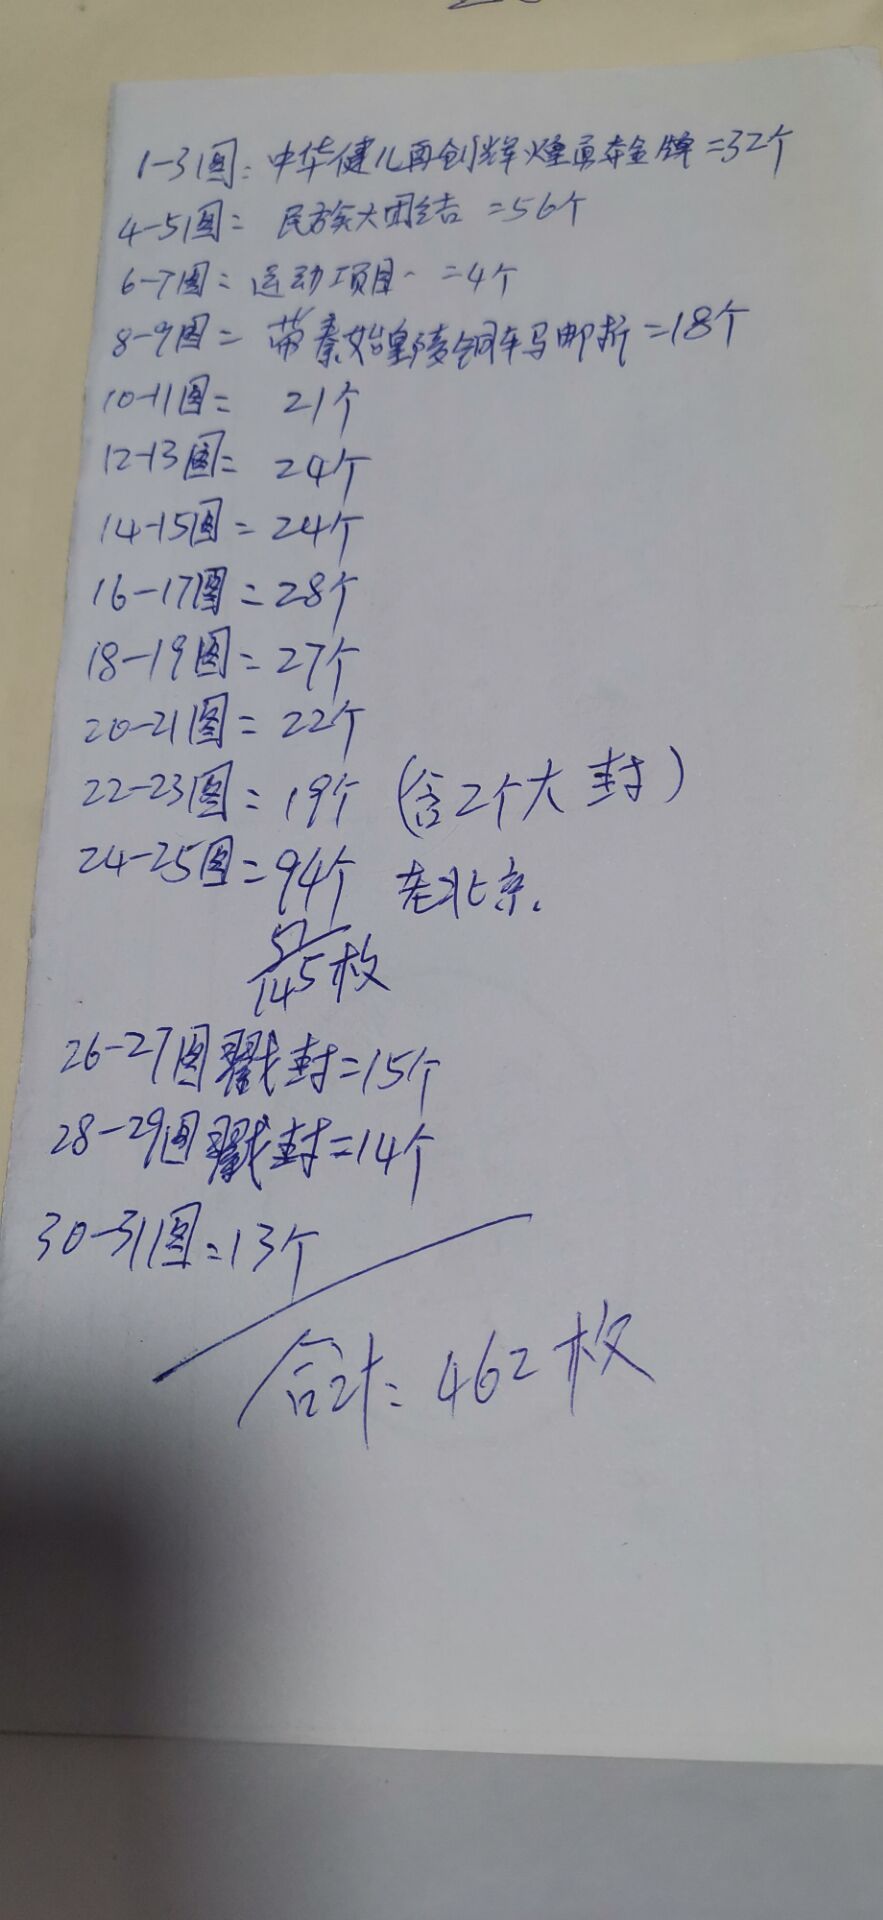 1-3图: 中华健儿再创辉煌勇夺金牌=32个
4-5图= 民族大团结 =56个
6-7图= 运动项目 =4个
8-9图= 带秦始皇陵铜车马邮折=18个
10-11图= 21个
12-13图= 24个
14-15图=24个
16-17图=28个
18-19图=27个
20-21图=22个
22-23图=19个 (含2个大封)
24-25图=94个 老北京.
145枚
26-27图戳封=15个
28-29图戳封=14个
30-31图=13个
合计=462枚